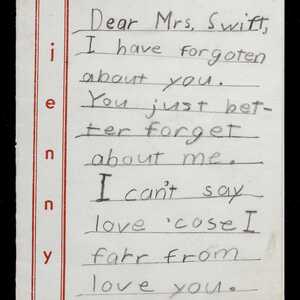 jenny
Dear Mrs. Swift,
I have forgoten
about you.
You just bet-
ter forget
about me.
I can't say
love 'cose I
farr from
love you.